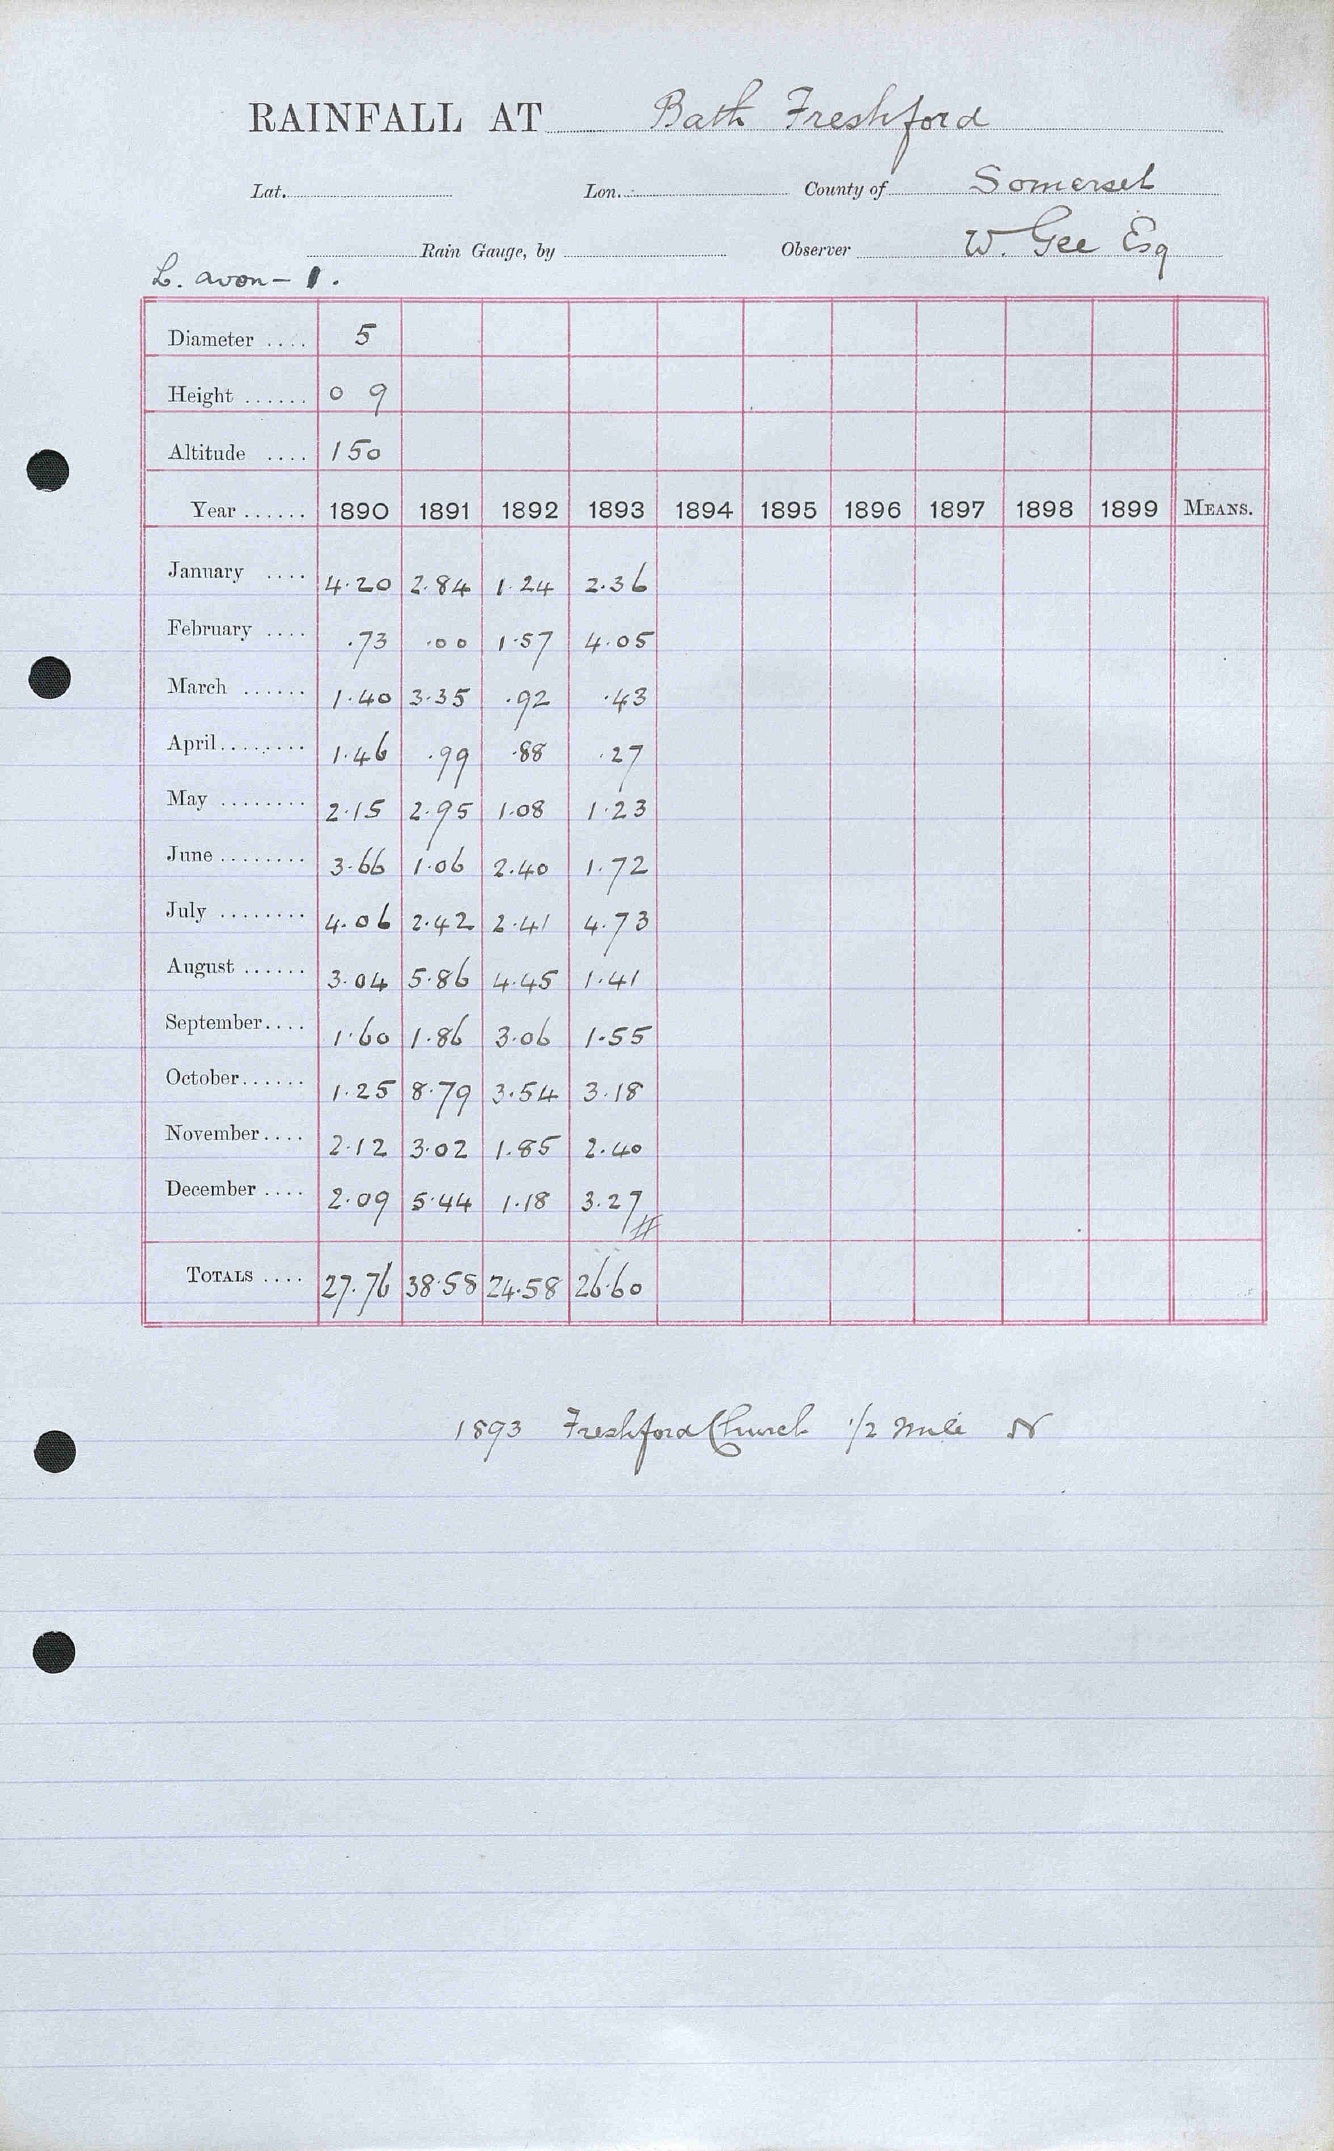 RAINFALL AT Bath Freshford
Lat. Lon. County of Somerset
Rain Gauge, by Observer W. Gee Esq
L. avon - 1.
Diameter .... 5
Height ...... 0 9
Altitude .... 150
Year ...... 1890 1891 1892 1893 1894 1895 1896 1897 1898 1899 MEANS.
January .... 4.20 2.84 1.24 2.36
February .... .73 .00 1.57 4.05
March ...... 1.40 3.35 .92 .43
April ........ 1.46 .99 .88 .27
May ........ 2.15 2.95 1.08 1.23
June ........ 3.66 1.06 2.40 1.72
July ........ 4.06 2.42 2.41 4.73
August ...... 3.04 5.86 4.45 1.41
September .... 1.60 1.86 3.06 1.55
October ...... 1.25 8.79 3.54 3.18
November .... 2.12 3.02 1.85 2.40
December .... 2.09 5.44 1.18 3.27
TOTALS .... 27.76 38.58 24.58 26.60
1893 Freshford Church 1/2 mile N